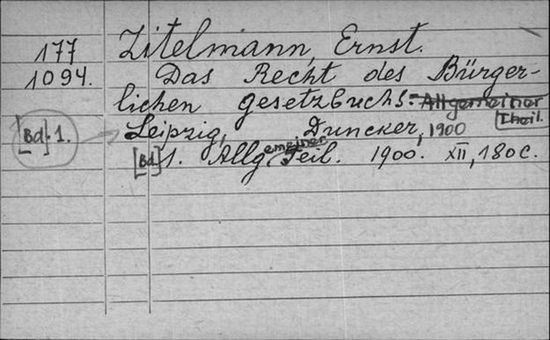 177 Zitelmann, Ernst.
1094. Das Recht des Bürger-
lichen Gesetzbuchs. Allgemeiner
Theil.
[Bd]. 1. Leipzig, Duncker, 1900
[Bd] 1. Allgemeiner Teil. 1900. XII, 180 c.